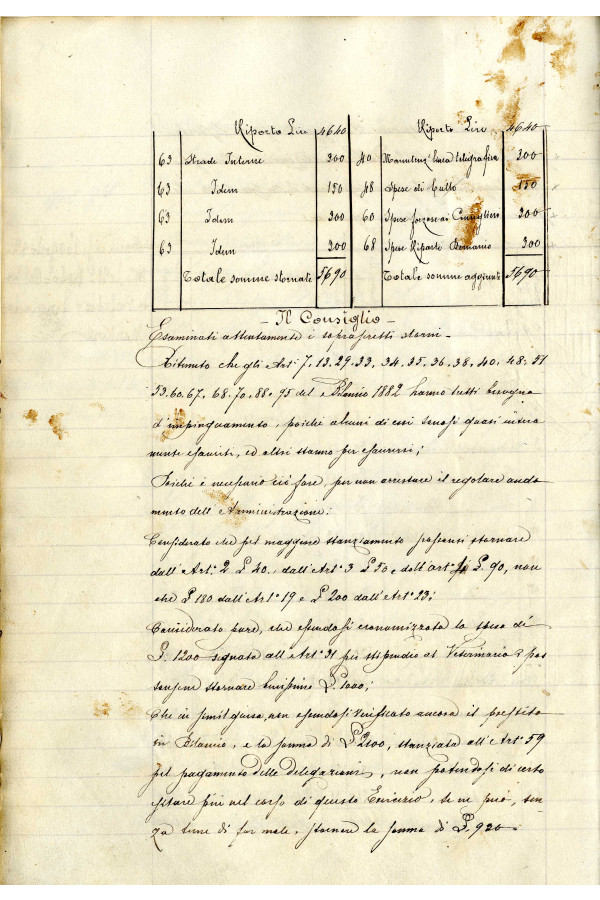 Riporto Lire 4640 Riporto Lire 4640
63 Strade Interne 300 40 Manutenz.e linea telegrafica 300
63 Idem 150 48 Spese di Culto 150
63 Idem 300 60 Spese forzose ai Consiglieri 300
63 Idem 300 68 Spese Riparti Demanio 300
Totale somme stornate 5690 Totale somme aggiunte 5690
- Il Consiglio -
Esaminati attentamente i sopradetti storni -
Ritenuto che gli Art.i 7. 13. 29. 33. 34. 35. 36. 38. 40. 48. 51
53. 60. 67. 68. 70. 88. 95 del Bilancio 1882 hanno tutti bisogno
d'impinguamento, poichè alcuni di essi sonosi quasi intera
mente esauriti, ed altri stanno per esaurirsi;
Poichè è necessario ciò fare, per non arrestare il regolare anda
mento dell'Amministrazione:
Considerato che pel maggiore stanziamento possonsi stornare
dall'Art.o 2 £ 40., dall'Art.o 3 £ 50 e dall'art.o £. 90, non
che £ 180 dall'Art.o 19 e £ 200 dall'Art.o 23;
Considerato pure, che essendosi economizzata la spesa di
£. 1200 segnata all'Art.o 31 per stipendio al Veterinario, pos
sonsene stornare benissimo £. 1000;
Che in simil guisa, non essendosi verificato ancora il prestito
in Bilancio, e la somma di £ 2100, stanziata all'Art.o 59
pel pagamento delle delegazioni, non potendosi di certo
esitare più nel corso di questo Esercizio, se ne può, sen
za tema di far male, stornare la somma di £. 920